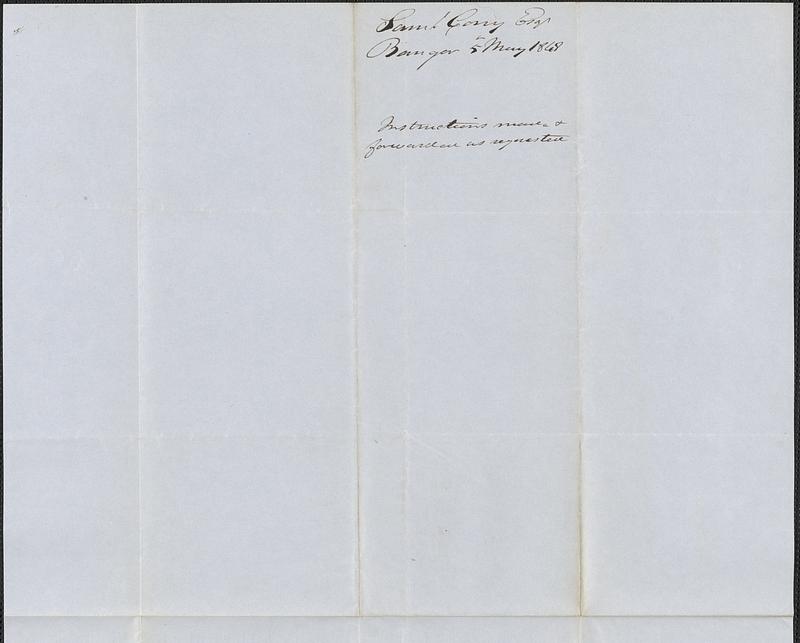 Saml Cony Esqr
Bangor 5 May 1848
Instructions made &
forwarded as requested